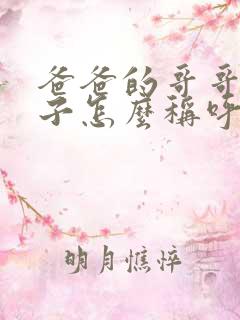 爸爸的哥哥
子怎麼稱呼
明月憔悴